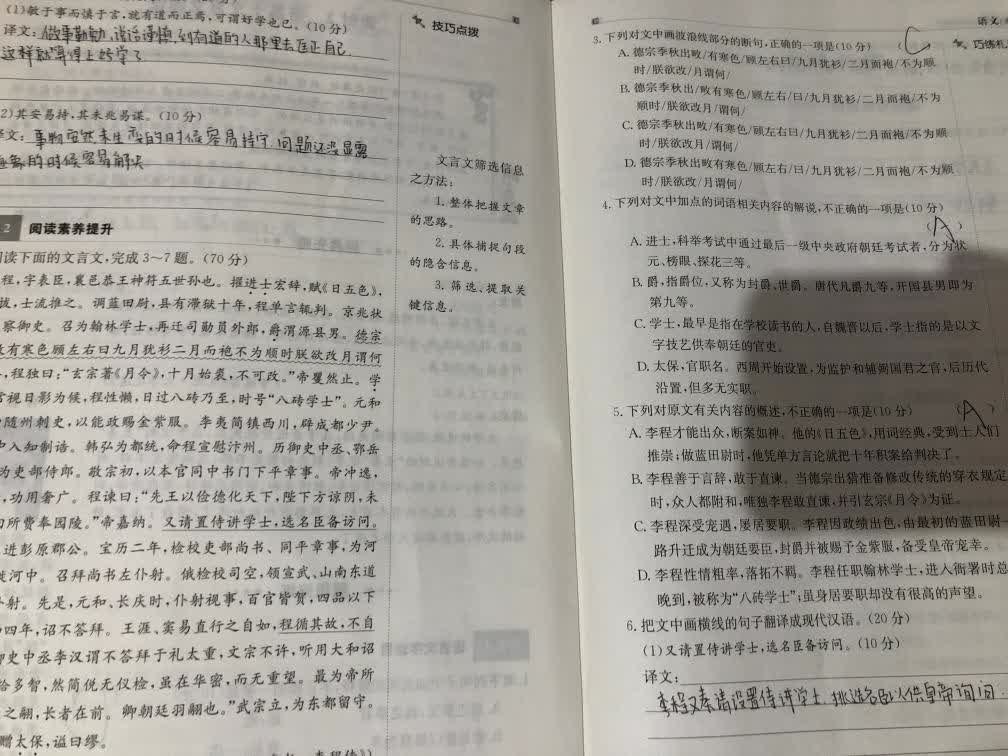 (1)敏于事而慎于言,就有道而正焉,可谓好学也已。(10分)
译文:做事勤勉,说话谨慎,到有道的人那里去匡正自己,
这样就算得上好学了
2)其安易持,其未兆易谋。(10分)
译文:事物安然未生变的时候容易持守,问题还没显露
的时候容易解决
2 阅读素养提升
阅读下面的文言文,完成3~7题。(70分)
程,字表臣,襄邑恭王神符五世孙也。擢进士宏辞,赋《日五色》,
拔,士流推之。调蓝田尉,县有滞狱十年,程单言辄判。京兆状
察御史。召为翰林学士,再迁司勋员外郎,爵渭源县男。德宗
有寒色顾左右曰九月犹衫二月而袍不为顺时朕欲改月谓何
,程独曰:“玄宗著《月令》,十月始裘,不可改。”帝矍然止。学
常视日影为候,程性懒,日过八砖乃至,时号“八砖学士”。元和
随州刺史,以能政赐金紫服。李夷简镇西川,辟成都少尹。
中入知制诰。韩弘为都统,命程宣慰汴州。历御史中丞、鄂岳
为吏部侍郎。敬宗初,以本官同中书门下平章事。帝冲逸,
,功用奢广。程谏曰:“先王以俭德化天下,陛下方谅阴,未
回所费奉园陵。”帝嘉纳。又请置侍讲学士,选名臣备访问。
进彭原郡公。宝历二年,检校吏部尚书、同平章事,为河
徙河中。召拜尚书左仆射。俄检校司空,领宣武、山南东道
仆射。先是,元和、长庆时,仆射视事,百官皆贺,四品以下
四年,诏不答拜。王涯、窦易直行之自如,程循其故,不自
御史中丞李汉谓不答拜于礼太重,文宗不许,听用大和诏
给多智,然简侻无仪检,虽在华密,而无重望。最为帝所
之翮,长者在前。卿朝廷羽翮也。”武宗立,为东都留守。
赠太保,谥曰缪。
技巧点拨
文言文筛选信息
之方法:
1. 整体把握文章
的思路。
2. 具体捕捉句段
的隐含信息。
3. 筛选、提取关
键信息。
语文
巧练
3. 下列对文中画波浪线部分的断句,正确的一项是(10分) ( C
A. 德宗季秋出畋/有寒色/顾左右曰/九月犹衫/二月而袍/不为顺
时/朕欲改/月谓何/
B. 德宗季秋出/畋有寒色/顾左右/曰/九月犹衫/二月而袍/不为
顺时/朕欲改月/谓何/
C. 德宗季秋出畋/有寒色/顾左右曰/九月犹衫/二月而袍/不为顺
时/朕欲改月/谓何/
D. 德宗季秋出畋有寒色/顾左右/曰/九月犹衫/二月而袍/不为顺
时/朕欲改/月谓何/
4. 下列对文中加点的词语相关内容的解说,不正确的一项是(10分)
( A )
A. 进士,科举考试中通过最后一级中央政府朝廷考试者,分为状
元、榜眼、探花三等。
B. 爵,指爵位,又称为封爵、世爵。唐代凡爵九等,开国县男即为
第九等。
C. 学士,最早是指在学校读书的人,自魏晋以后,学士指的是以文
字技艺供奉朝廷的官吏。
D. 太保,官职名。西周开始设置,为监护和辅弼国君之官,后历代
沿置,但多无实职。
5. 下列对原文有关内容的概述,不正确的一项是(10分) ( A )
A. 李程才能出众,断案如神。他的《日五色》,用词经典,受到士人们
推崇;做蓝田尉时,他凭单方言论就把十年积案给判决了。
B. 李程善于言辞,敢于直谏。当德宗出猎准备修改传统的穿衣规定
时,众人都附和,唯独李程敢直谏,并引玄宗《月令》为证。
C. 李程深受宠遇,屡居要职。李程因政绩出色,由最初的蓝田尉一
路升迁成为朝廷要臣,封爵并被赐予金紫服,备受皇帝宠幸。
D. 李程性情粗率,落拓不羁。李程任职翰林学士,进入衙署时总
晚到,被称为“八砖学士”;虽身居要职却没有很高的声望。
6. 把文中画横线的句子翻译成现代汉语。(20分)
(1)又请置侍讲学士,选名臣备访问。(10分)
译文:
李程又奏请设置侍讲学士,挑选名臣以供皇帝询问.